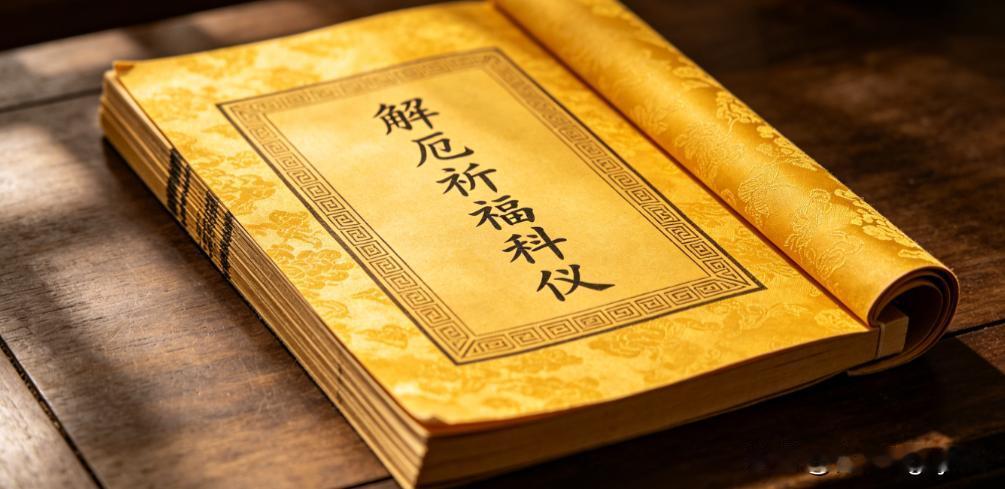 解厄祈福科仪